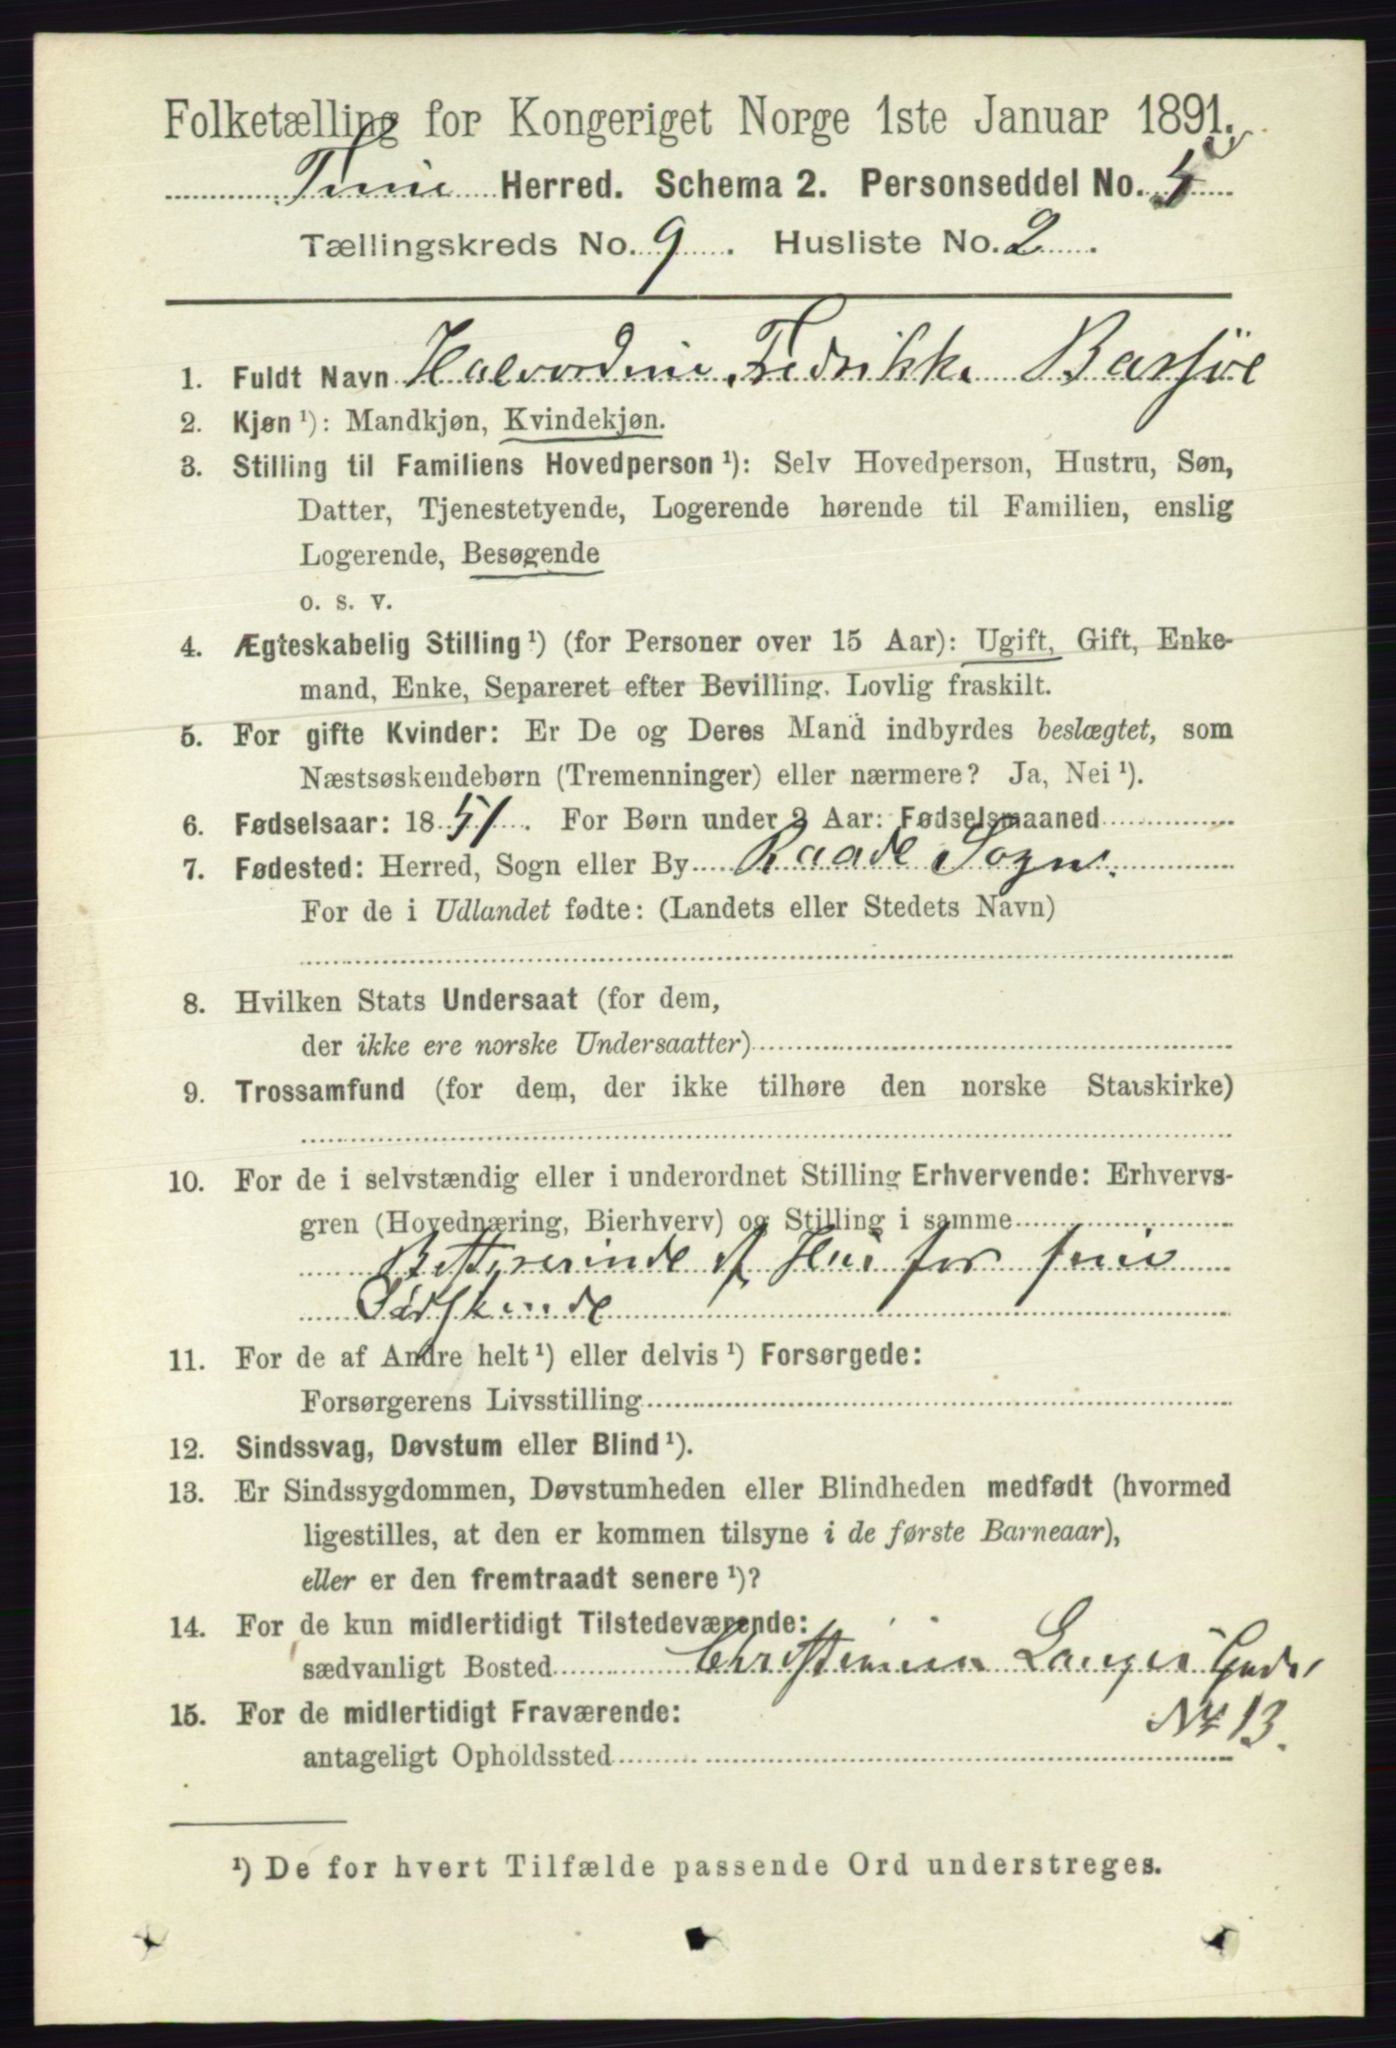 Folketælling for Kongeriget Norge 1ste Januar 1891.
Tune Herred. Schema 2. Personseddel No. 5
Tællingskreds No. 9. Husliste No. 2.
1. Fuldt Navn Halvordine Fredrikke Bassøe
2. Kjøn ¹): Mandkjøn, Kvindekjøn.
3. Stilling til Familiens Hovedperson ¹): Selv Hovedperson, Hustru, Søn,
Datter, Tjenestetyende, Logerende hørende til Familien, enslig
Logerende, Besøgende
o. s. v.
4. Ægteskabelig Stilling ¹) (for Personer over 15 Aar): Ugift, Gift, Enke-
mand, Enke, Separeret efter Bevilling. Lovlig fraskilt.
5. For gifte Kvinder: Er De og Deres Mand indbyrdes beslægtet, som
Næstsøskendebørn (Tremenninger) eller nærmere? Ja, Nei ¹).
6. Fødselsaar: 1851. For Børn under 2 Aar: Fødselsmaaned
7. Fødested: Herred, Sogn eller By Raade Sogn.
For de i Udlandet fødte: (Landets eller Stedets Navn)
8. Hvilken Stats Undersaat (for dem,
der ikke ere norske Undersaatter)
9. Trossamfund (for dem, der ikke tilhøre den norske Statskirke)
10. For de i selvstændig eller i underordnet Stilling Erhvervende: Erhvervs-
gren (Hovednæring, Bierhverv) og Stilling i samme
Bestyrerinde af Hus for sine
Sødskende
11. For de af Andre helt ¹) eller delvis ¹) Forsørgede:
Forsørgerens Livsstilling
12. Sindssvag, Døvstum eller Blind ¹).
13. Er Sindssygdommen, Døvstumheden eller Blindheden medfødt (hvormed
ligestilles, at den er kommen tilsyne i de første Barneaar),
eller er den fremtraadt senere ¹)?
14. For de kun midlertidigt Tilstedeværende:
sædvanligt Bosted Christiania Langes Gade
No 13.
15. For de midlertidigt Fraværende:
antageligt Opholdssted
¹) De for hvert Tilfælde passende Ord understreges.